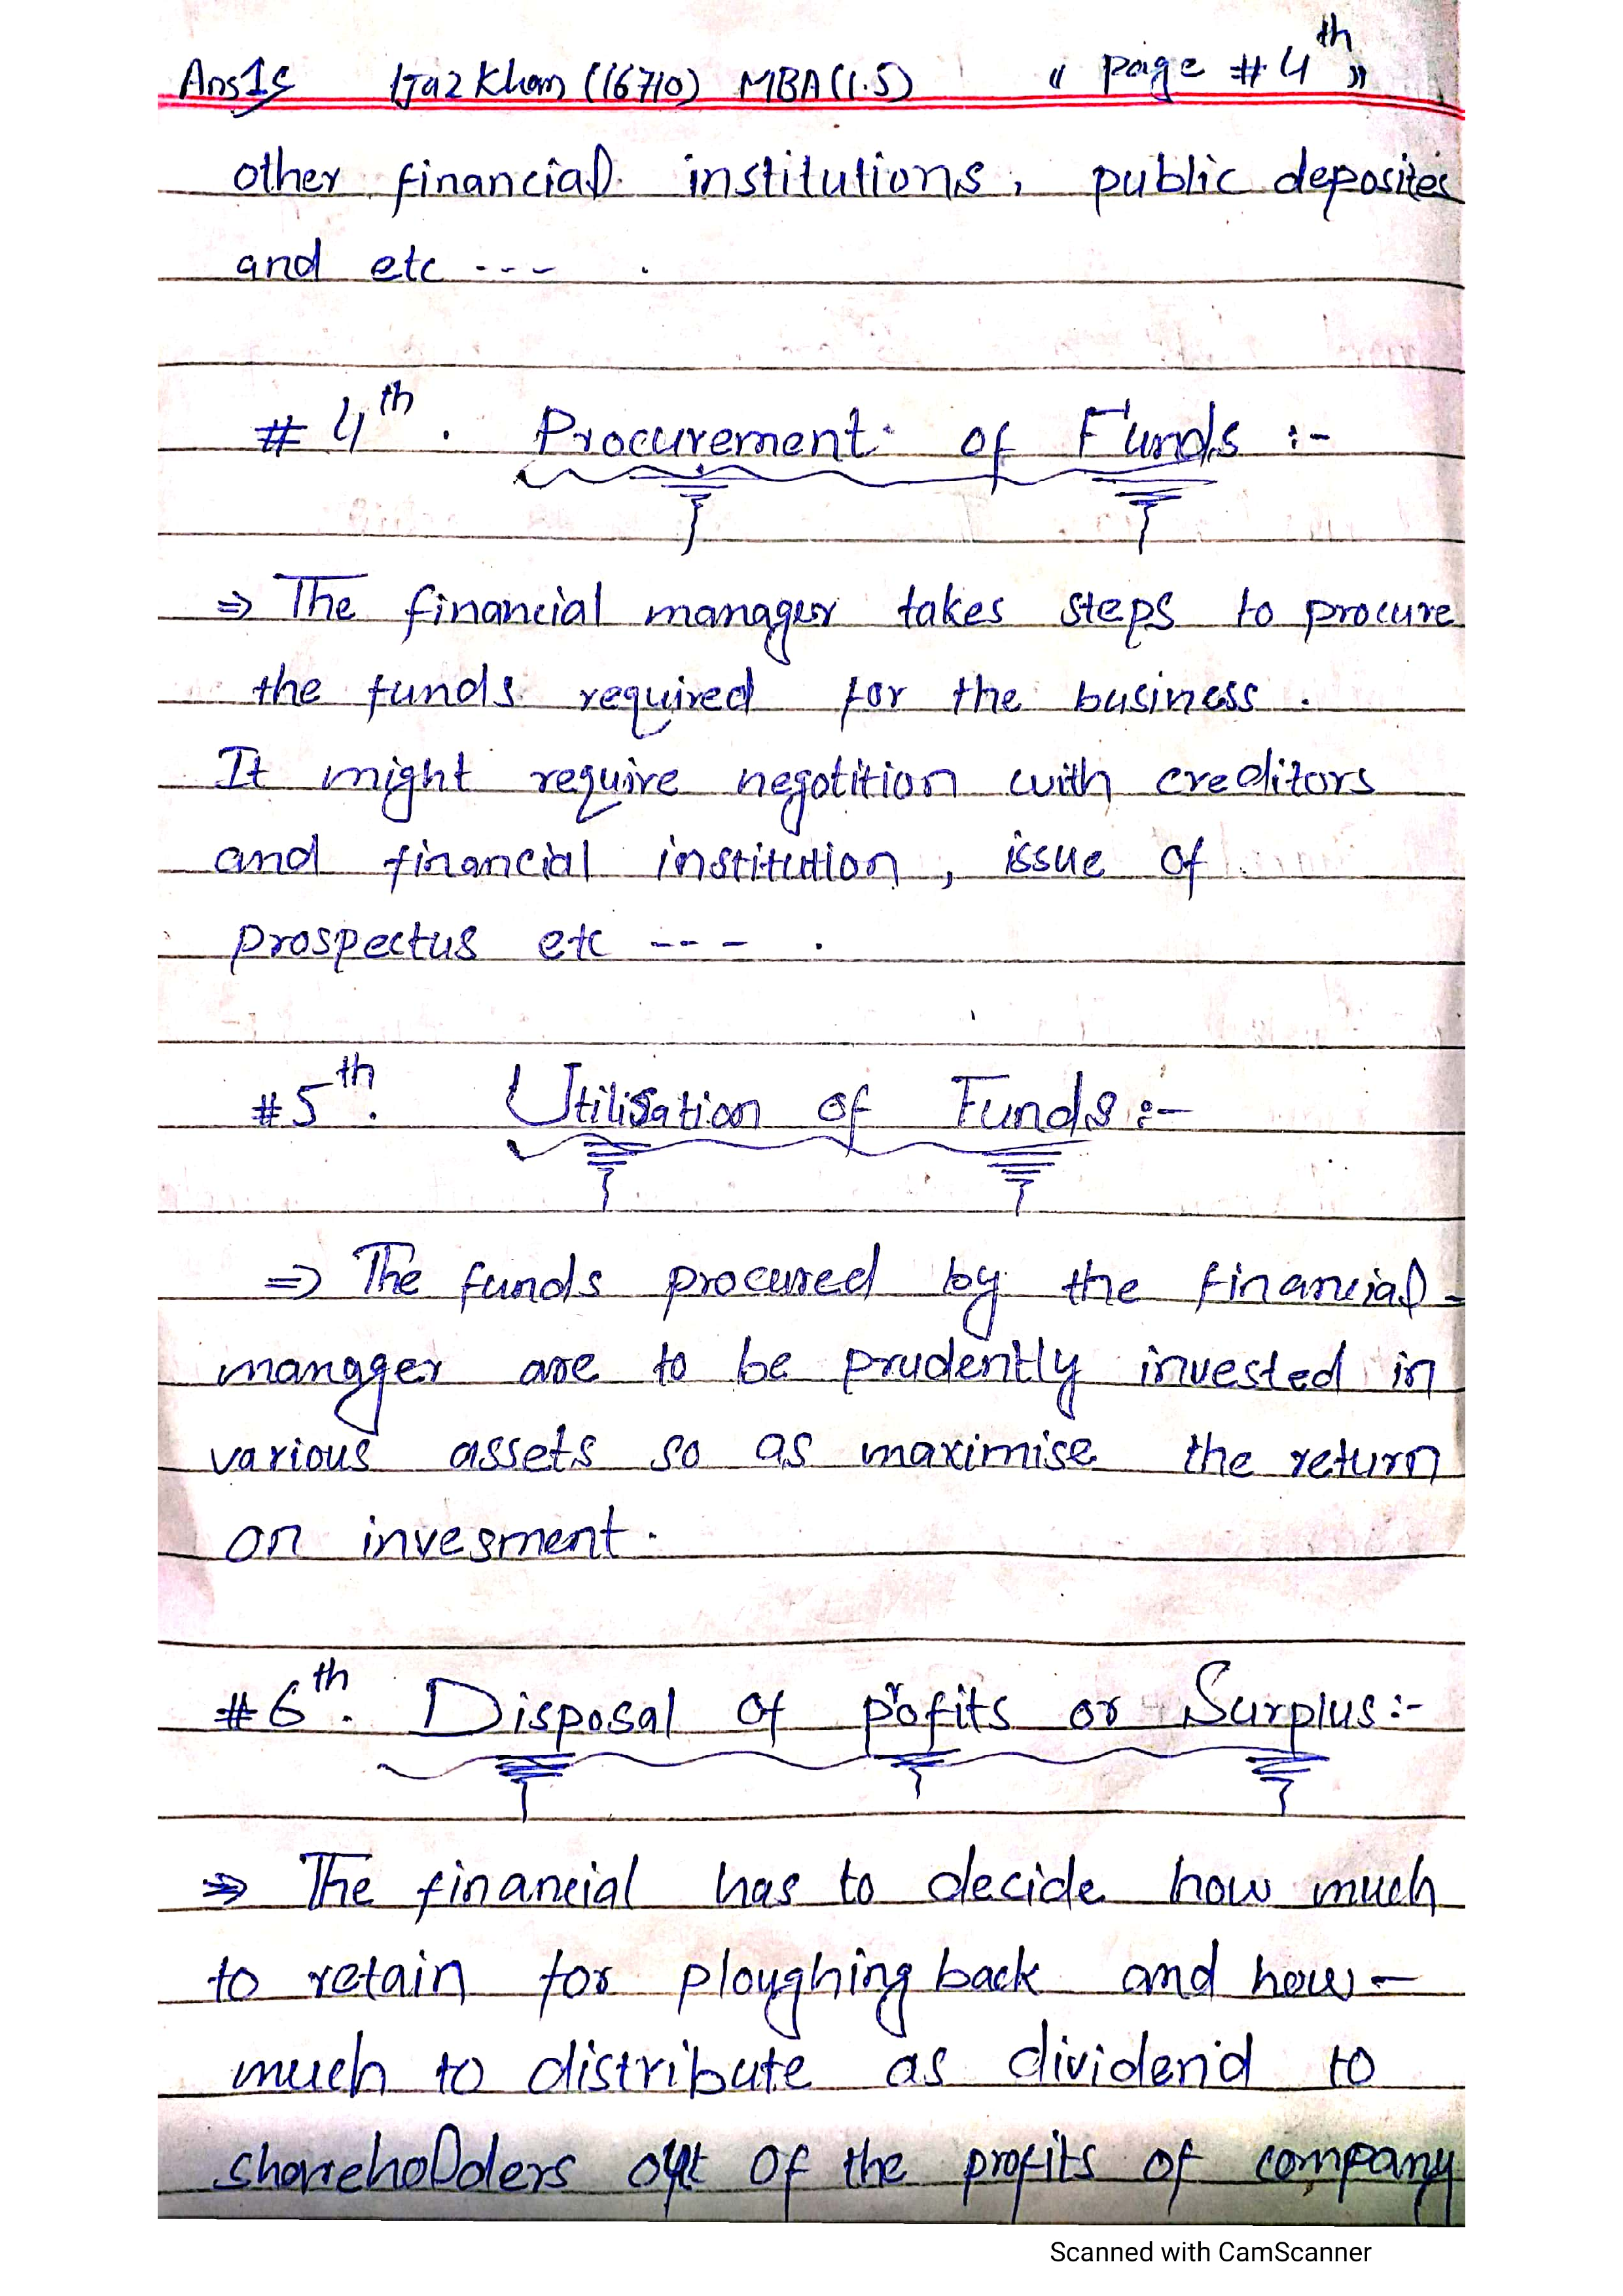 Ans1s Ijaz Khan (16710) MBA(1.5) " page # 4th "
other financial institutions, public deposites
and etc --- .
# 4th . Procurement of Funds :-
⇒ The financial manager takes steps to procure
the funds required for the business .
It might require negotition with creditors
and financial institution , issue of
prospectus etc --- .
#5th. Utilisation of Funds :-
⇒ The funds procured by the financial -
manager are to be prudently invested in
various assets so as maximise the return
on invesment .
#6th. Disposal of profits or Surplus :-
⇒ The financial has to decide how much
to retain for ploughing back and how -
much to distribute as dividend to
shareholders out of the profits of company
Scanned with CamScanner